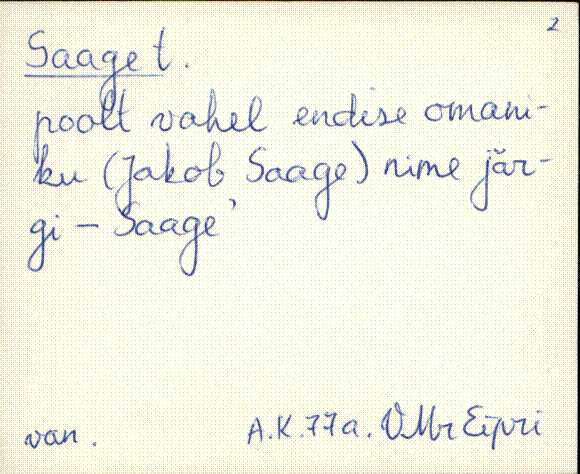 2
Saage t.
poolt vahel endise omani-
ku (Jakob Saage) nime jär-
gi – Saage'
van. A.K.77a. VMr Eipri